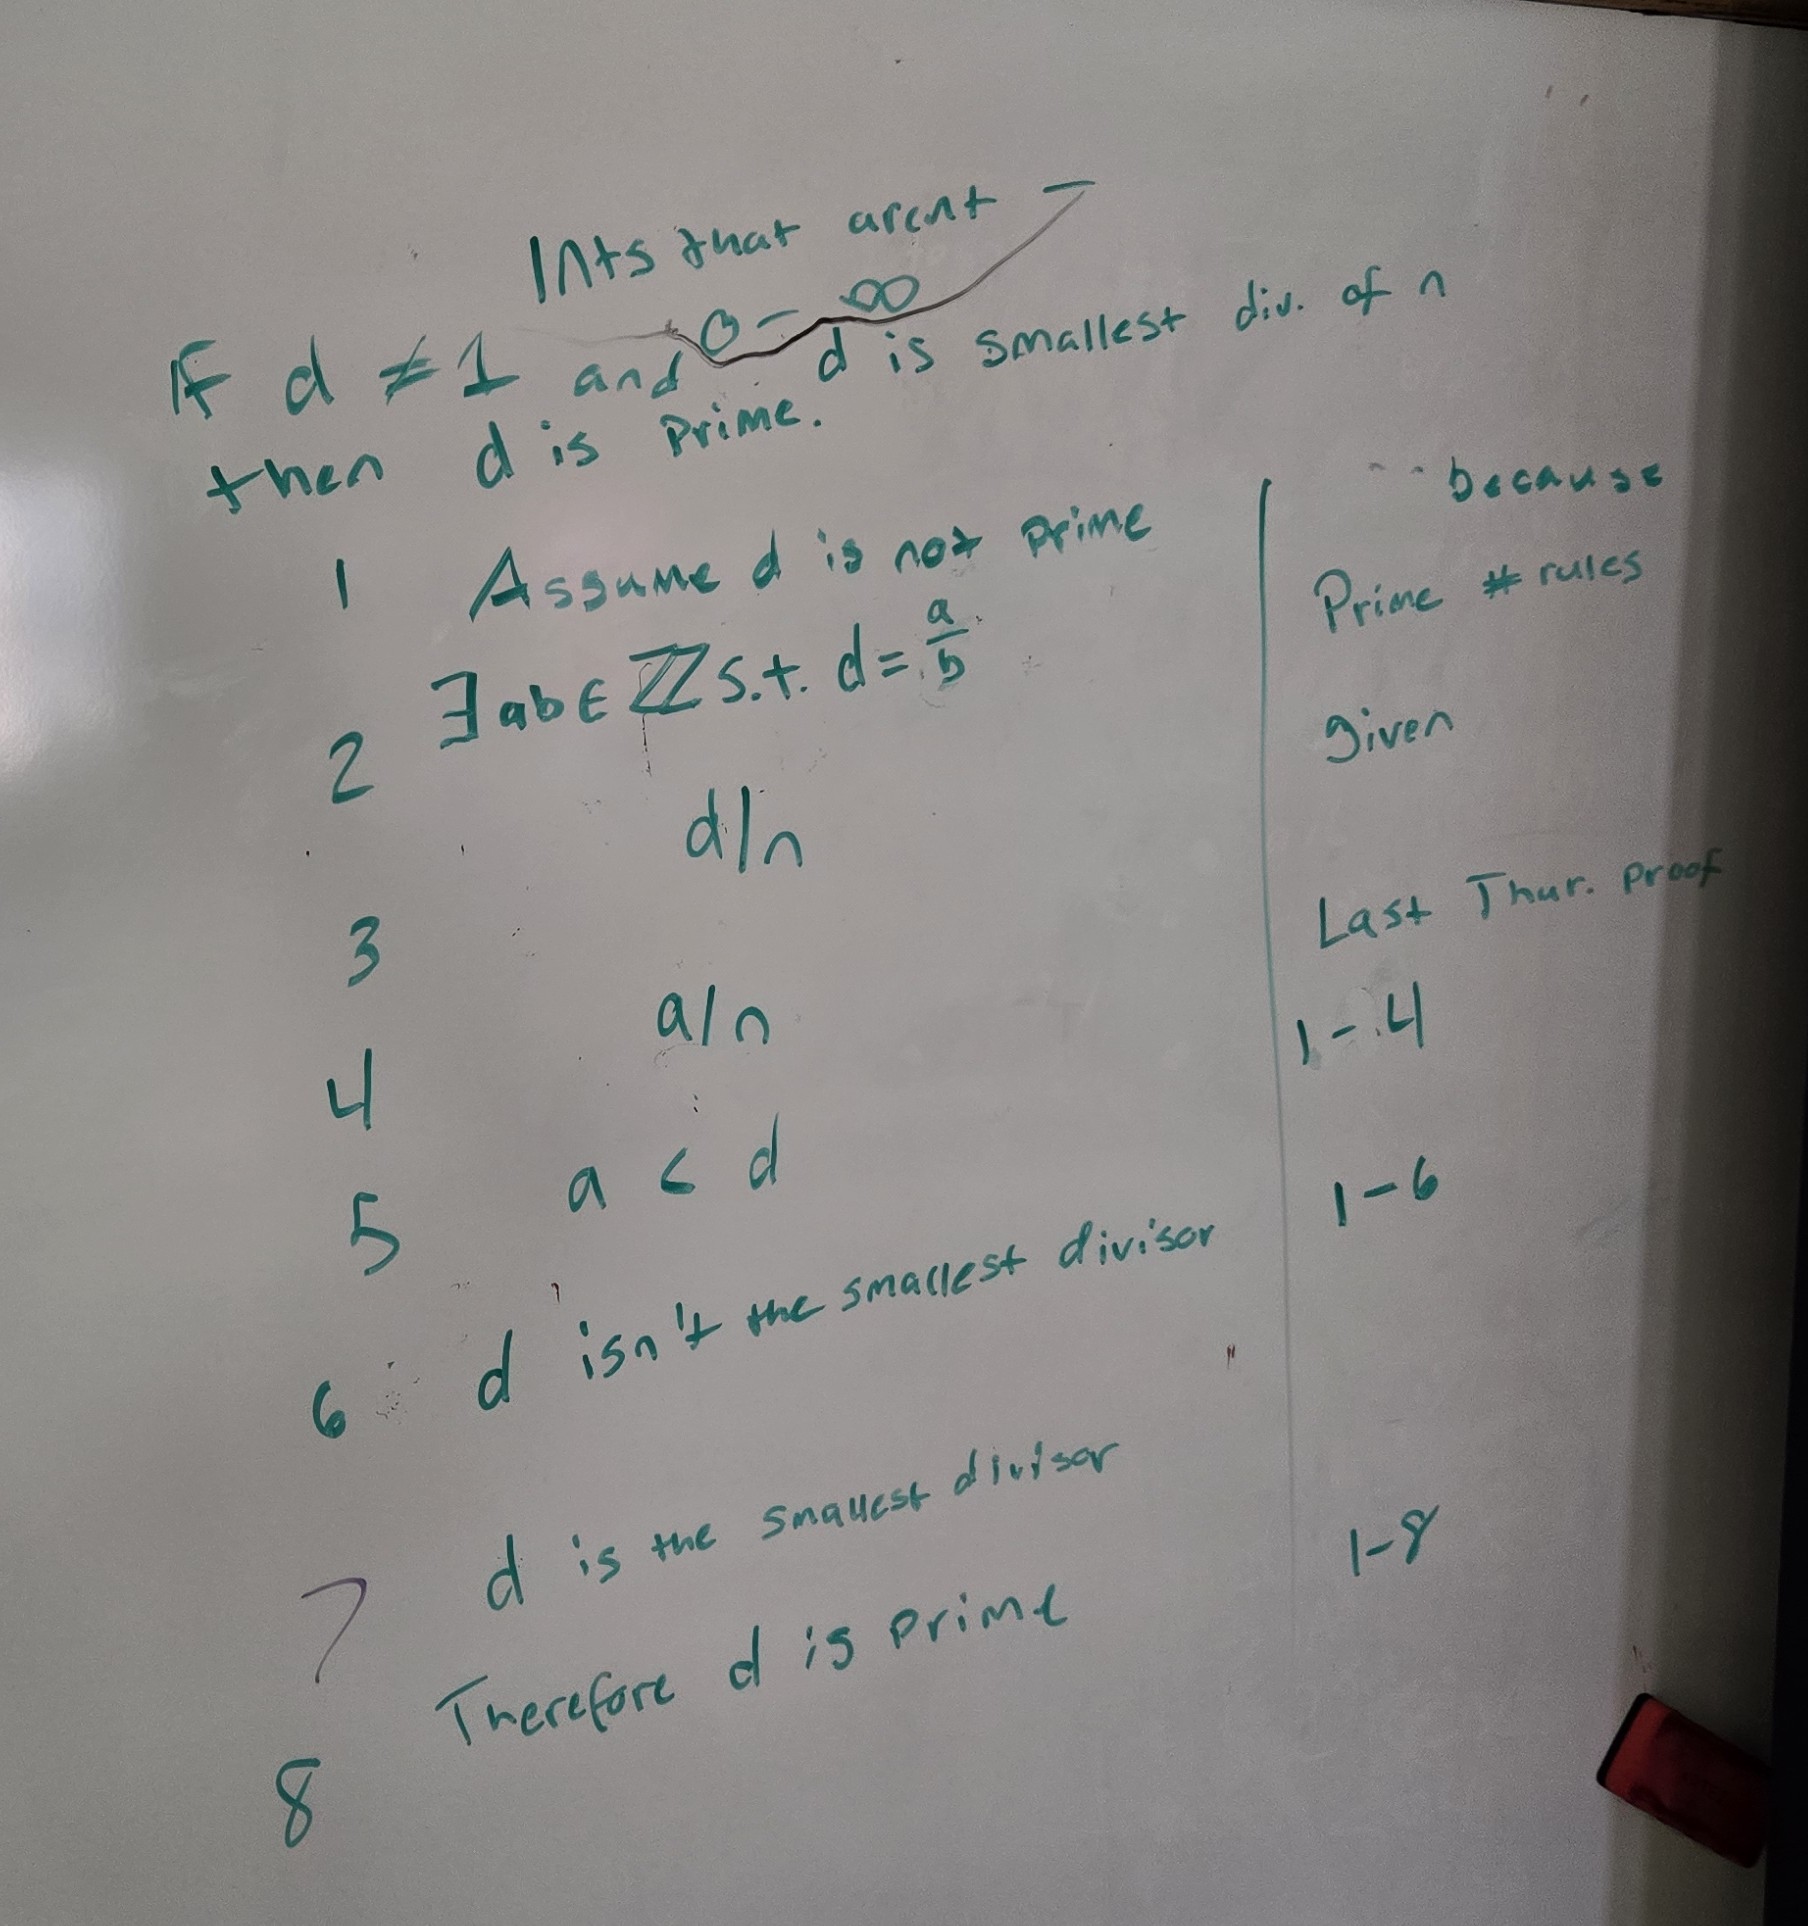 Ints that arent -
0 - ∞
If d ≠ 1 and d is smallest div. of n
then d is Prime.
because
1 Assume d is not Prime
Prime # rules
2 ∃ ab ∈ ℤ s.t. d = a/b
given
3 d/n
Last Thur. Proof
4 a/n
1 - 4
5 a < d
1 - 6
6 d isn't the smallest divisor
7 d is the smallest divisor
1 - 8
8 Therefore d is Prime